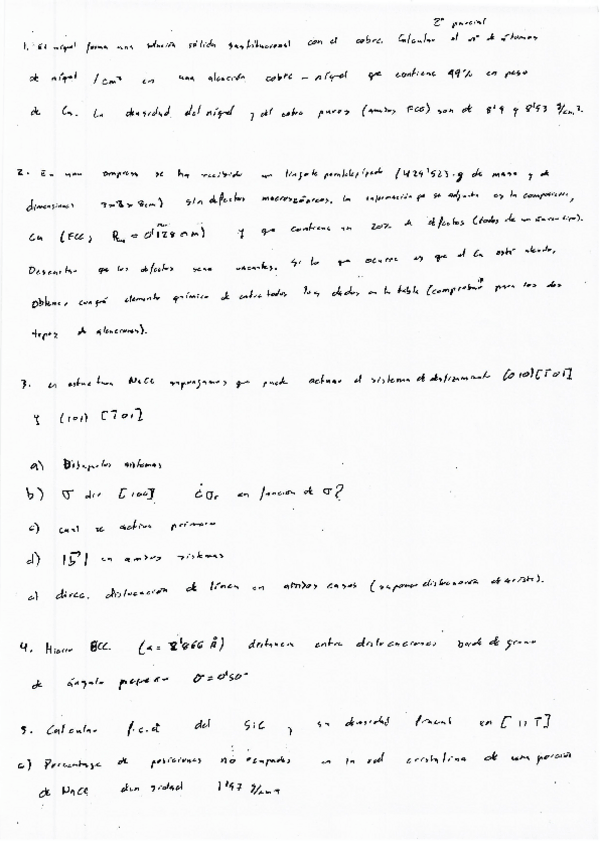 2º parcial
1. El níquel forma una solución sólida sustitucional con el cobre. Calcular el nº de átomos
de níquel /cm³ en una aleación cobre-níquel que contiene 99% en peso
de Cu. La densidad del níquel y del cobre puros (ambos FCC) son de 8'9 y 8'93 g/cm³.
2. En una empresa se ha recibido un lingote paralelepípedo ( g de masa y de
dimensiones cm) sin defectos macroscópicos. La información que se adjunta es la composición,
Cu (FCC, = 0'128 nm) y que contiene un 20% de defectos (todos de un mismo tipo).
Descartar que los defectos sean vacantes. Si lo que ocurre es que el Cu está aleado,
obtener con qué elemento químico de entre todos los dados en la tabla (comprobar para los dos
tipos de aleaciones).
3. en estructura NaCl supongamos que puede actuar el sistema de deslizamiento (010)[1̅01]
y (101) [1̅01]
a) sistemas
b) σ dir [100] ¿σr en función de σ?
c) cual se activa primero
d) |b⃗| en ambos sistemas
e) direcc. dislocación de línea en ambos casos (suponer dislocación de arista).
4. Hierro BCC. (a = 2'866 Å) distancia entre dislocaciones borde de grano
de ángulo pequeño θ = 0'50º
5. Calcular f.c.a del SiC y su densidad lineal en [111̅]
a) Porcentaje de posiciones no ocupadas en la red cristalina de una porción
de NaCl